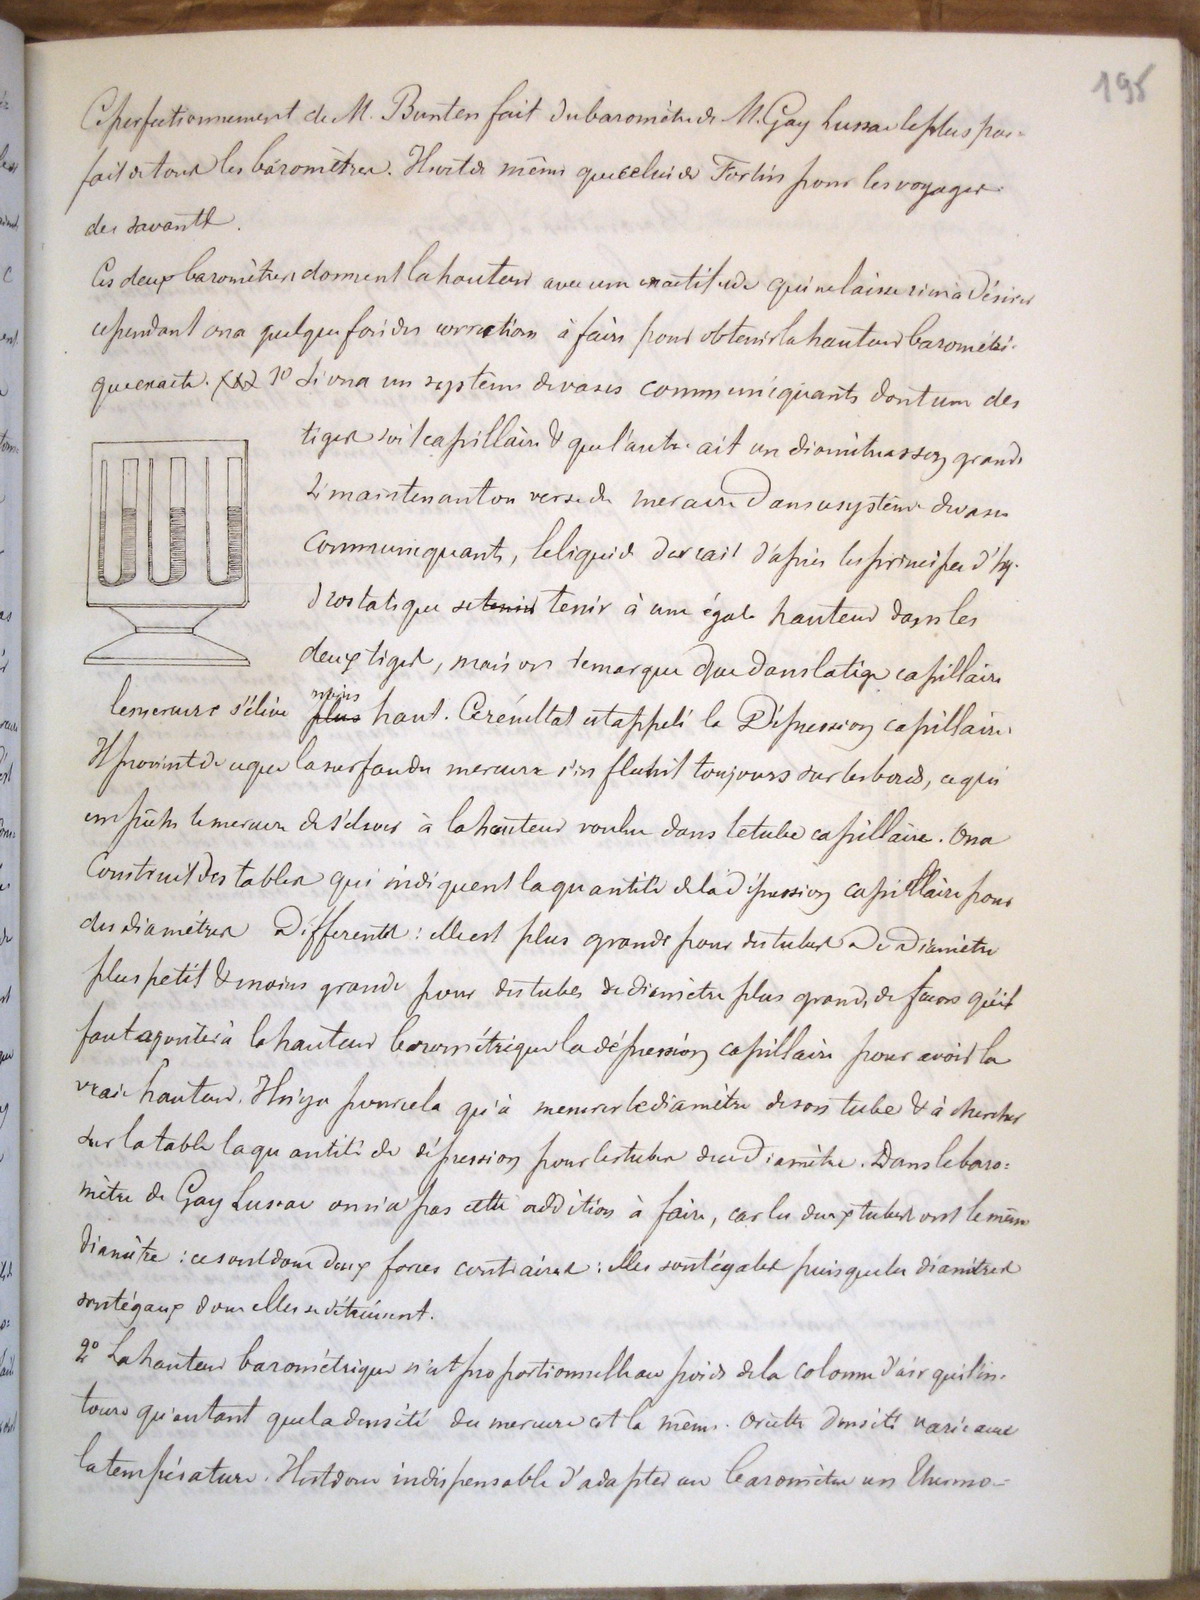 195
Ce perfectionnement de M. Bunten fait du baromètre de M. Gay Lussac le plus par-
fait de tous les baromètres. Il sert de même que celui de Fortin pour les voyages
des savants.
Ces deux baromètres donnent la hauteur avec une exactitude qui ne laisse rien à désirer
cependant on a quelquefois des corrections à faire pour obtenir la hauteur barométri-
que exacte. 1º Si on a un système de vases communiquants dont une des
tiges soit capillaire & que l'autre ait un diamètre assez grand
Si maintenant on verse du mercure dans ce système de vases
communiquants, le liquide devrait d'après les principes d'hy-
drostatique se tenir tenir à une égale hauteur dans les
deux tiges, mais on remarque que dans la tige capillaire
le mercure s'élève plus moins haut. Ce résultat est appelé la Dépression capillaire.
Il provient de ce que la surface du mercure s'infléchit toujours sur les bords, ce qui
empêche le mercure de s'élever à la hauteur voulue dans le tube capillaire. On a
construit des tables qui indiquent la quantité de la dépression capillaire pour
des diamètres différents : elle est plus grande pour des tubes de diamètre
plus petit & moins grande pour des tubes de diamètre plus grand, de façon qu'il
faut ajouter à la hauteur barométrique la dépression capillaire pour avoir la
vraie hauteur. Il n'y a pour cela qu'à mesurer le diamètre de son tube & à chercher
sur la table la quantité de dépression pour les tubes de ce diamètre. Dans le baro=
mètre de Gay Lussac on n'a pas cette addition à faire, car les deux tubes ont le même
diamètre : ce sont donc deux forces contraires : elles sont égales puisque les diamètres
sont égaux donc elles se détruisent.
2º La hauteur barométrique n'est proportionnelle au poids de la colonne d'air qui l'en-
toure qu'autant que la densité du mercure est la même. Or cette densité varie avec
la température. Il est donc indispensable d'adapter au baromètre un thermo=